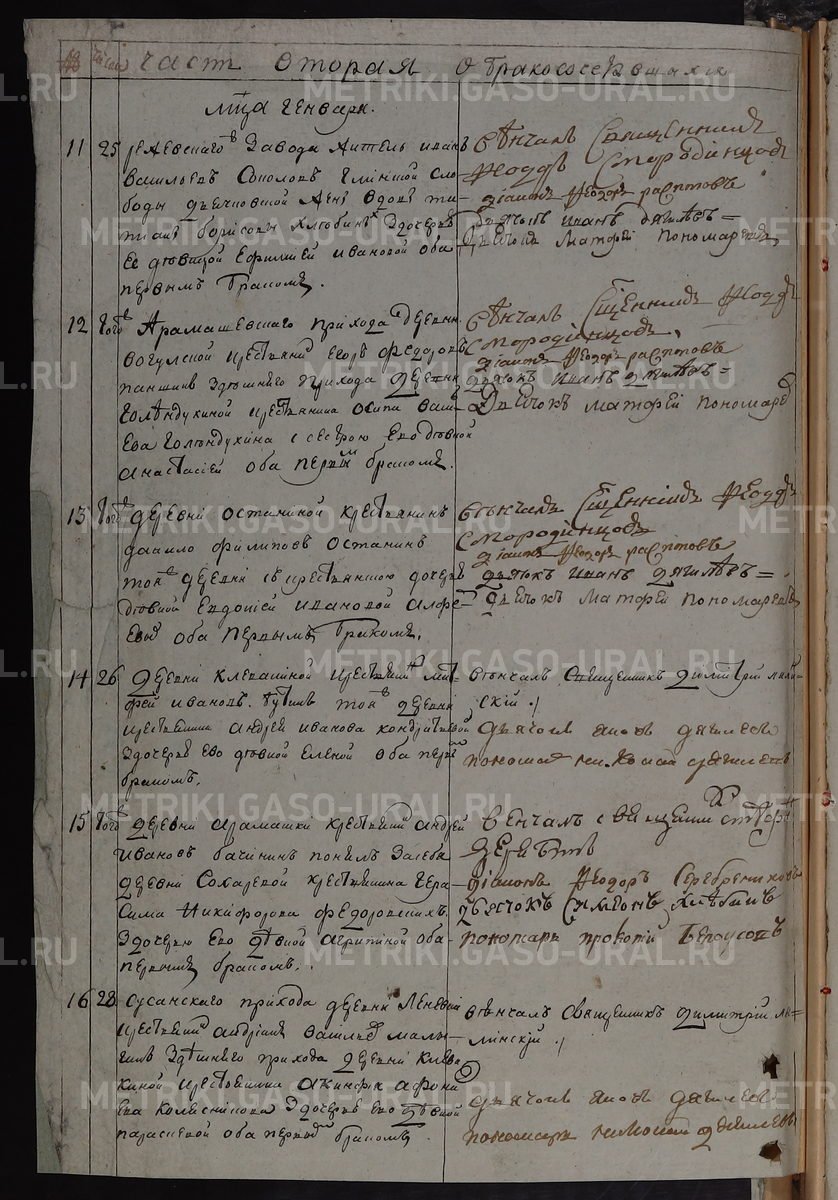 часть вторая о бракосочетавшихся
мца генваря.
11 25 режевскаго завода житель иванъ
васильевъ соколовъ глинской сло-
боды вдовы
борисовы здочерью
ее девицой ефимией ивановой оба
первымъ бракомъ.
венчалъ священникъ
феоддъ смородинцовъ
диаконъ феодоръ распоповъ
дьячокъ иванъ дягилевъ =
матфей пономаревъ
12 того арамашевскаго прихода деревни
вогулской крестьянинъ егоръ федоровъ
паншинъ здешняго прихода деревни
голендухиной крестьянина осипа василь-
ева голендухина с сестрою ево девкой
анастасией оба первым бракомъ.
венчалъ сщенникъ феоддъ
смородинцовъ
диаконъ феодоръ распоповъ
дьячокъ иванъ дягилевъ =
матфей пономаревъ
13 того деревни останиной крестьянинъ
данило филиповъ останинъ
тояжъ деревни съ крестьянскою дочерью
девкой евдокией ивановой алфе-
евой оба первымъ бракомъ.
венчалъ сщенникъ феоддъ
смородинцовъ
диаконъ феодоръ распоповъ
дьячокъ иванъ дягилевъ =
матфей пономаревъ
14 26 деревни клевакиной крестьянинъ мат-
фей ивановъ тояжъ деревни
крестьянина андрея иванова кондратьевой
здочерью ево девкой еленой оба первымъ
бракомъ.
венчалъ священникъ димитрий малин-
ский
дьячокъ яковъ дягилевъ
пономарь дягилевъ
15 того деревни арамашки крестьянинъ андрей
ивановъ бачининъ понялъ засебя
деревни сохаревой крестьянина гера-
сима никифорова федоровскихъ
здочерью ево девкой агрипиной оба
первымъ бракомъ.
венчалъ священникъ
диаконъ феодоръ серебрениковъ
дьячокъ симеонъ хлебинъ
пономарь прокопий белоусовъ
16 28 сусанскаго прихода деревни леневки
крестьянинъ андриянъ васильевъ малы-
гинъ здешняго прихода деревни клева-
киной крестьянина акинфия афонась-
ева колесникова здочерью ево девкой
параскевой оба первымъ бракомъ.
венчалъ священникъ димитрий ма-
линский
дьячокъ яковъ дягилевъ
пономарь дягилевъ
METRIKI.GASO-URAL.RU